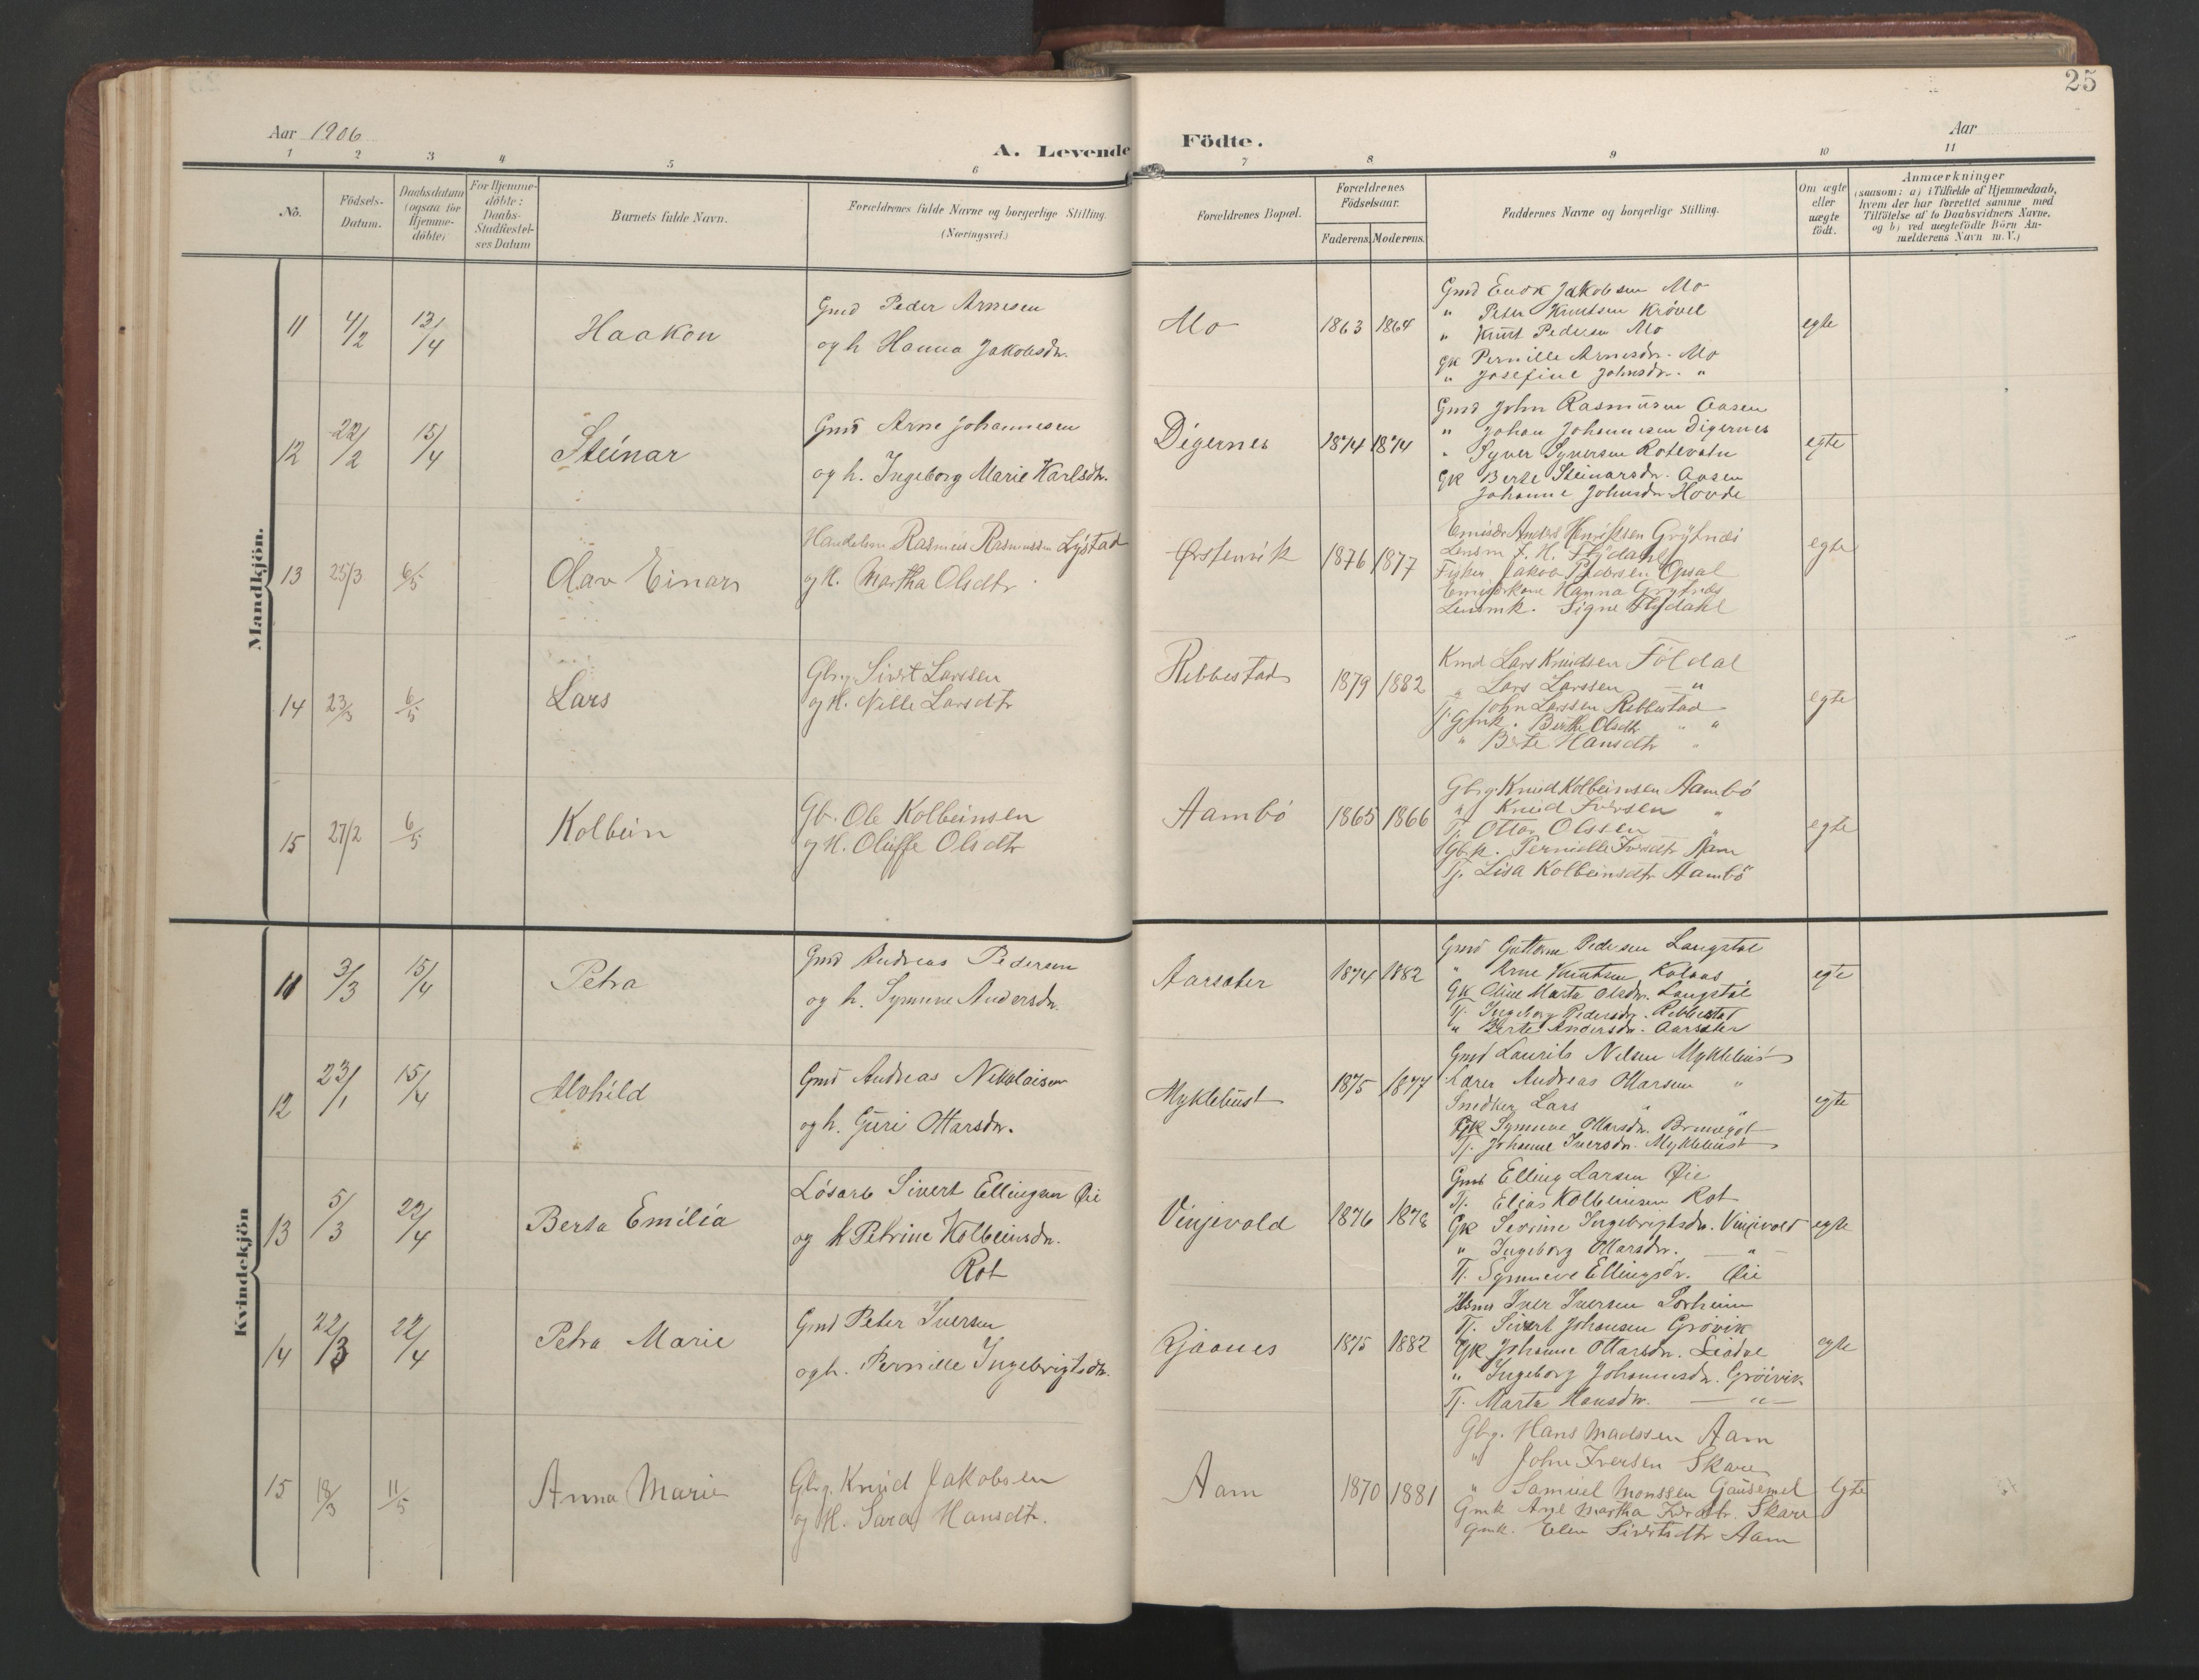 25
Aar 1906
A. Levende Födte.
Aar
1 2 3 4 5 6 7 8 9 10 11
No.
Födsels-
Datum.
Daabsdatum
(ogsaa for
Hjemme-
döbte)
For Hjemme-
döbte:
Daabs-
Stadfæstel-
ses Datum
Barnets fulde Navn.
Forældrenes fulde Navne og borgerlige Stilling.
(Næringsvei.)
Forældrenes Bopæl.
Forældrenes
Födselsaar.
Faderens. Moderens.
Faddernes Navne og borgerlige Stilling.
Om ægte
eller
uægte
födt.
Anmærkninger
(saasom: a) i Tilfælde af Hjemmedaab,
hvem der har forrettet samme med
Tilföielse af to Daabsvidners Navne.
og b) ved uægtefödte Börn An-
melderens Navn m. V.)
Mandkjön.
11 4/2 13/4 Haakon
Gmd Peder Arnesen
og h Hanna Jakobsdr.
Mo 1863 1864
Gmd Enok Jakobsen Mo
" Peter Knutsen Krövel
" Knut Pedersen Mo
gk Pernille Arnesdr. Mo
" Josefine Johnsdr. "
egte
12 22/2 15/4 Steinar
Gmd Arne Johannesen
og h. Ingeborg Marie Karlsdtr.
Digernes 1874 1874
Gmd John Rasmusen Aasen
" Johan Johannesen Digernes
" Syver Syversen Rotevatn
gk Berte Steinarsdr. Aasen
Johanne Johnsdr Hovde
egte
13 25/3 6/5 Olav Einar
Handelsm Rasmus Rasmussen Lystad
og H. Martha Olsdtr
Ørstenvik 1876 1877
Emisær Anders Henriksen Grytnes
Lensm J. H. Flydahl
Fisker Jakob Pedersen Opsal
Emisærkone Hanna Grytnes
Lensmk. Signe Flydahl
egte
14 23/3 6/5 Lars
Gbrg. Sivert Larssen
og H. Nille Larsdtr
Ribbestad 1879 1882
Kmd Lars Knudsen Följdal
" Lars Larssen — "
Tj. John Larssen Ribbestad
Gmk. Birthe Olsdtr " "
" Berte Hansdtr "
egte
15 27/2 6/5 Kolbein
Gb. Ole Kolbeinsen
og H. Oluffe Olsdtr
Aambö 1865 1866
Gbrg. Knud Kolbeinsen Aambö
" Knud Iversen "
Tj. Ottar Olssen "
Gbk. Pernielle Iversdtr Aam
Tj. Lisa Kolbeinsdtr Aambö
egte
Kvindekjön
11 3/3 15/4 Petra
Gmd Andreas Pedersen
og h. Synneve Andersdr.
Aarsæter 1874 1882
Gmd Guttorm Pedersen Langstøl
" Arne Knutsen Kolaas
Gk Oline Marta Olsdr. Langstøl
Tj. Ingeborg Pedersdr. Ribbestad
" Berte Andersdr. Aarsæter
egte
12 23/1 15/4 Alvhild
Gmd Andreas Nikolaisen
og h. Guri Ottarsdr.
Myklebust 1875 1877
Gmd Laurits Nilsen Myklebust
Lærer Andreas Ottarsen "
Snedker Lars " "
Gk Synneve Ottarsdr.
Tj. Johanne Iversdr. Myklebust
egte
13 5/3 22/4 Berta Emilia
Lösarb Sivert Ellingsen Øie
og h Petrine Kolbeinsdr.
Rot
Vinjevold 1876 1878
Gmd Elling Larsen Øie
Tj. Elias Kolbeinsen Rot
Gk Serine Ingebrigtsdr. Vinjevold
" Ingeborg Ottarsdr. — " —
Tj. Synneve Ellingsdr. Øie
egte
14 22/3 22/4 Petra Marie
Gmd Peter Iversen
og h. Pernille Ingebrigtsdtr.
Gjaanes 1875 1882
Hsmd Iver Iversen
Tj. Sivert Johansen Grövik
Gk Johanne Ottarsdr.
" Ingeborg Johannesdr. Gröivik
Tj. Marta Hansdr. — " —
egte
15 18/3 11/5 Anna Marie
Gbrg. Knud Jakobsen
og H. Sara Hansdtr.
Aam 1870 1881
Gbrg. Hans Madssen Aam
" John Iversen Skare
" Samuel Monssen Gausemel
Gmk Ane Martha Iversdtr. Skare
Gmk. Elen Sivertsdtr Aam
Egte